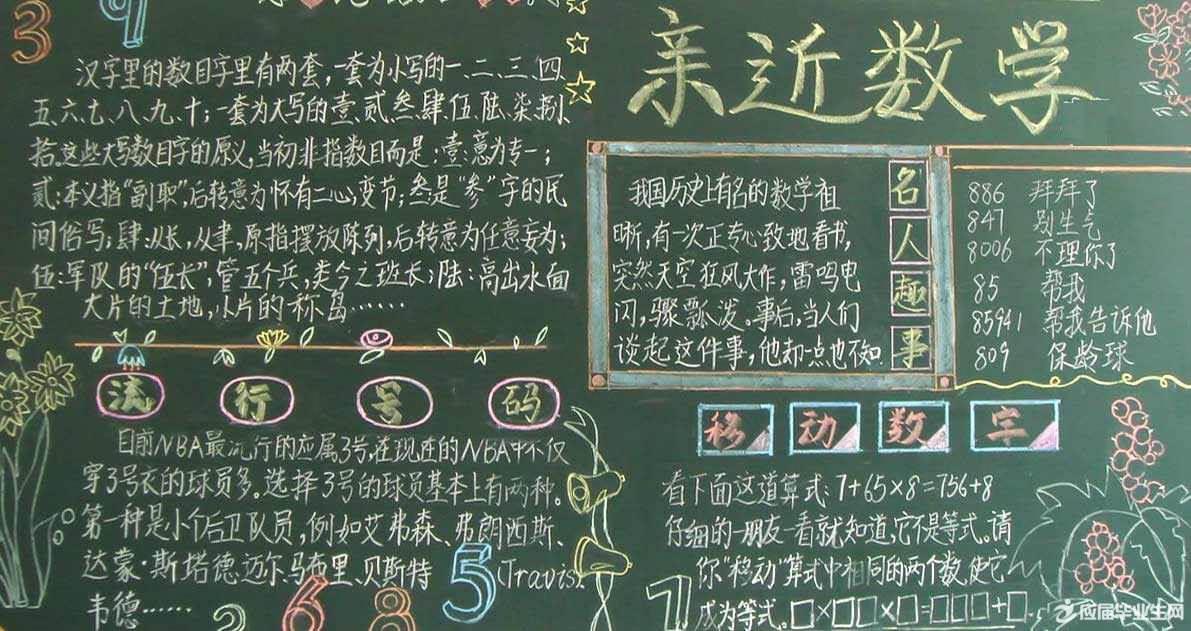 亲近数学
汉字里的数目字里有两套,一套为小写的一、二、三、四、
五、六、七、八、九、十;一套为大写的壹、贰、叁、肆、伍、陆、柒、捌、
拾.这些大写数目字的原义,当初非指数目而是:壹:意为专一;
贰:本义指“副职”,后转意为怀有二心,变节;叁是“参”字的民
间俗写;肆:从长,从聿,原指摆放陈列,后转意为任意妄为;
伍:军队的“伍长”,管五个兵,类今之班长;陆:高出水面
大片的土地,小片的称岛……
流行号码
目前NBA最流行的应属3号,在现在的NBA中不仅
穿3号衣的球员多。选择3号的球员基本上有两种。
第一种是小个后卫队员,例如艾弗森、弗朗西斯、
达蒙·斯塔德迈尔、马布里、贝斯特(Travis
韦德……
名人趣事
我国历史上有名的数学祖
晰,有一次正专心致地看书,
突然天空狂风大作,雷鸣电
闪,骤瓢泼。事后,当人们
谈起这件事,他却一点也不知.
886 拜拜了
847 别生气
8006 不理你了
85 帮我
85941 帮我告诉他
809 保龄球
移动数字
看下面这道算式:7+65×8=756+8
仔细的一朋友一看就知道,它不是等式。请
你“移动”算式中相同的两个数使它
成为等式。□×□□×□=□□□+□…
3
9
2
6
8
5
7
应届毕业生网